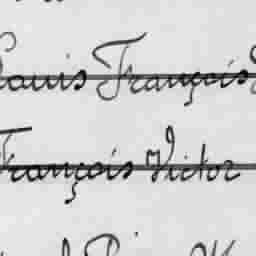 Louis François
François Victor